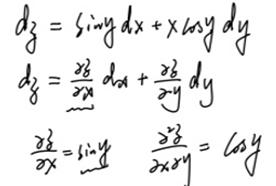 dz = siny dx + x cosy dy
dz = ∂z/∂x dx + ∂z/∂y dy
∂z/∂x = siny ∂²z/∂x∂y = cosy